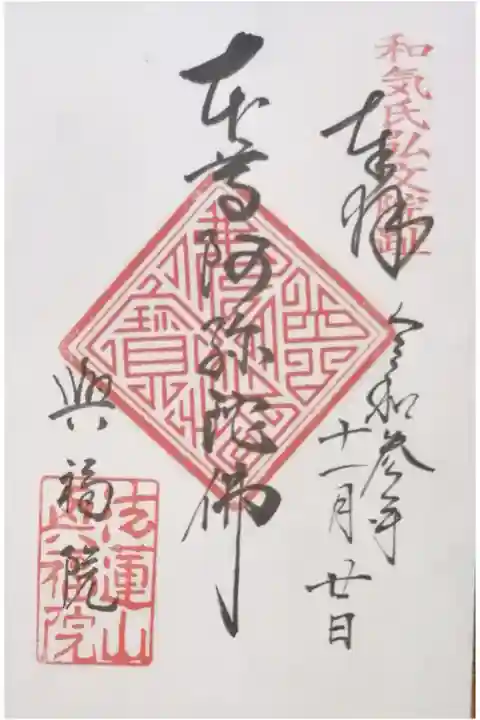 和気氏弘文院趾
奉拝
令和参年
十一月廿日
本尊阿弥陀佛
興福院
法蓮山
興福院